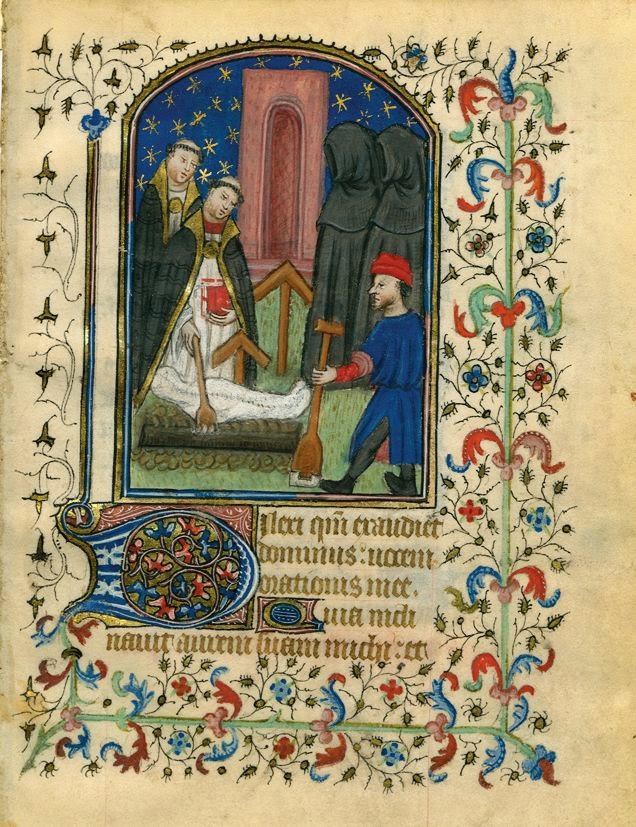 Dilexi qm̄ exaudiet
dominus : uocem
orationis mee .
Quia incli
nauit aurem suam michi : et